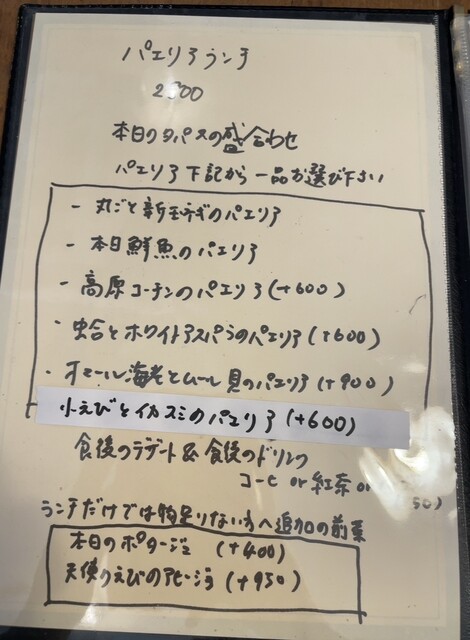 パエリアランチ
2500
本日のタパスの盛合わせ
パエリア下記から一品お選び下さい
- 丸ごと新玉ネギのパエリア
- 本日鮮魚のパエリア
- 高原コーチンのパエリア(+600)
・蛤とホワイトアスパラのパエリア(+600)
・オマール海老とムール貝のパエリア(+900)
小えびとイカスミのパエリア(+600)
食後のデザート & 食後のドリンク
コーヒー or 紅茶 or 50)
ランチだけでは物足りない方へ追加の前菜
本日のポタージュ (+400)
天使のえびのアヒージョ(+950)